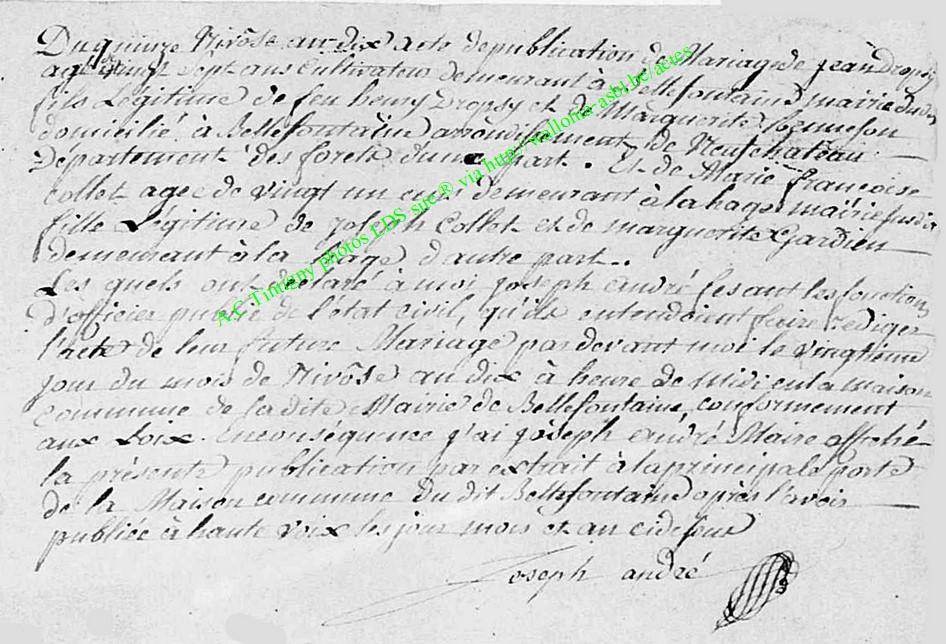 Du quinze Nivôse an dix acte de publication de Mariage de jean Dropsy
agé vingt sept ans Cultivateur demeurant à Bellefontaine mairie dudit
fils Légitime de feu henry Dropsy et de Marguerite
domicilié à Bellefontaine arrondissement de Neufchateau
Département des forets d'une part. Et de Marie françoise
Collet agee de vingt un ans demeurant à la hage mairie susdite
fille Légitime de joseph Collet et de marguerite Gardien
demeurant à la hage d'autre part..
Les quels ont déclaré à moi joseph andré fesant les fonctions
d'officier public de l'état civil, qu'ils entendoient faire rediger
l'acte de leur future Mariage par devant moi le vingtieme
jour du mois de Nivôse an dix à heure de Midi en la maison
commune de ladite Mairie de Bellefontaine, conformement
aux Loix. En conséquence j'ai joseph andré Maire affiché
la présente publication par extrait à la principale porte
de la Maison commune du dit Bellefontaine après l'avoir
publiée à haute voix les jour mois et an ci dessus
Joseph andré
AC Tintigny photos EDS sucr® via http://wallonia-asbl.be/actes